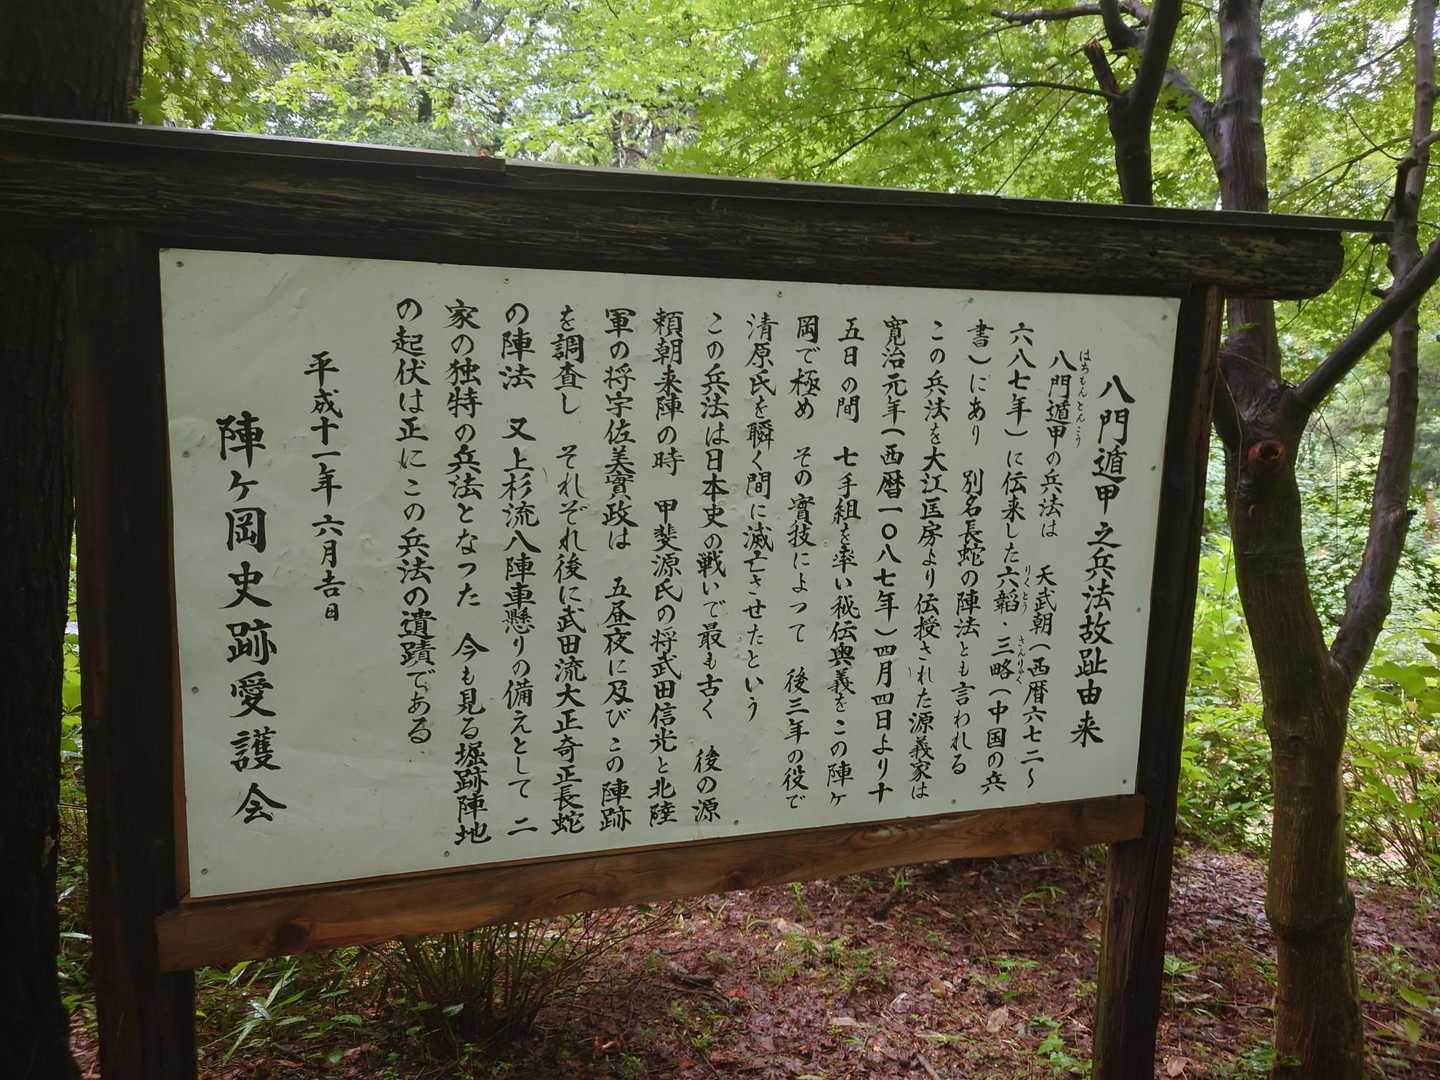 八門遁甲之兵法故趾由来
八門遁甲の兵法は 天武朝(西暦六七二〜
はちもんとんこう
六八七年)に伝来した六韜・三略(中国の兵
りくとう さんりゃく
書)にあり 別名長蛇の陣法とも言われる
この兵法を大江匡房より伝授された源義家は
寛治元年(西暦一〇八七年)四月四日より十
五日の間 七手組を率い秘伝奥義をこの陣ヶ
岡で極め その實技によって 後三年の役で
清原氏を瞬く間に滅亡させたという
この兵法は日本史の戦いで最も古く 後の源
頼朝来陣の時 甲斐源氏の将武田信光と北陸
軍の将宇佐美實政は 五昼夜に及びこの陣跡
を調査し それぞれ後に武田流大正奇正長蛇
の陣法 又上杉流八陣車懸りの備えとして 二
家の独特の兵法となった 今も見る堀跡陣地
の起伏は正にこの兵法の遺蹟である
平成十一年六月吉日
陣ヶ岡史跡愛護会